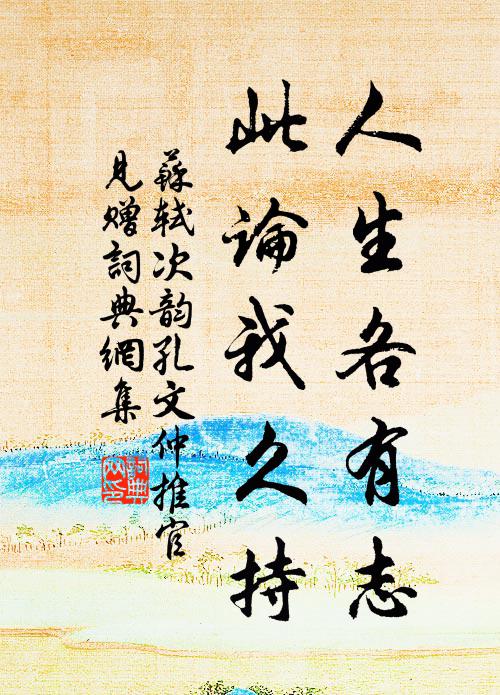 人生各有志
此論我久持
蘇軾次韵孔文仲推官
見贈詞典網集